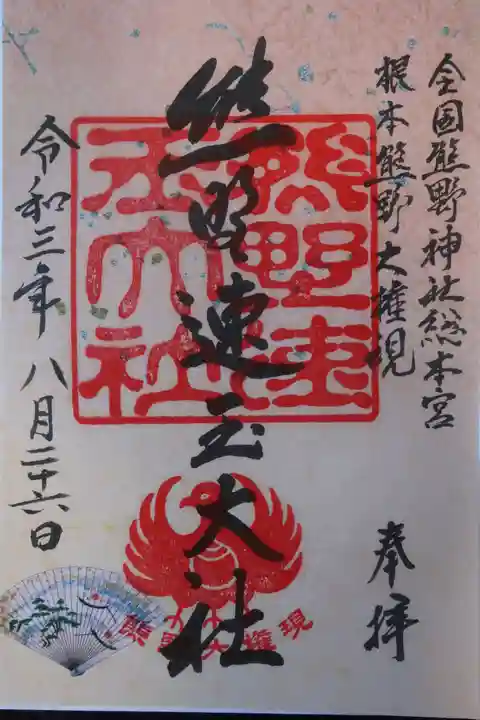 全国熊野神社総本宮
根本熊野大権現
奉拝
熊野速玉大社
熊野速
玉大社
熊野大権現
令和三年八月二十六日